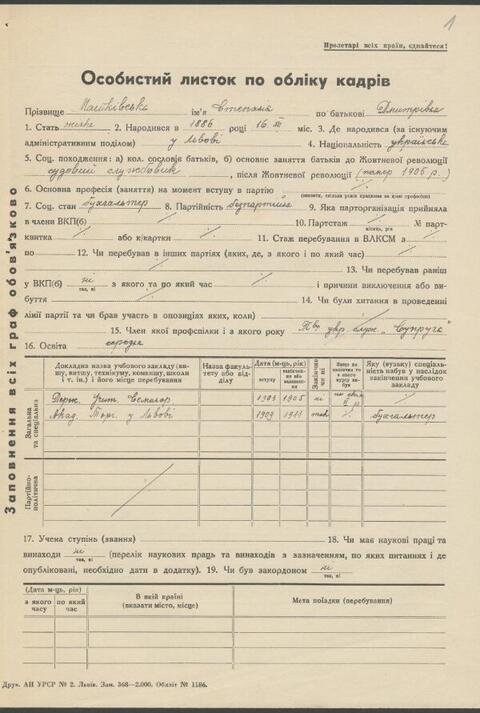 1
Пролетарі всіх країн, єднайтеся!
Особистий листок по обліку кадрів
Прізвище Машківська ім'я Стефанія по батькові Дмитрівна
1. Стать жіноча 2. Народився в 1886 році 16 XII міс. 3. Де народився (за існуючим
адміністративним поділом) у Львові 4. Національність українська
5. Соц. походження: а) кол. сословіє батьків, б) основне заняття батьків до Жовтневої революції
судовий службовик, після Жовтневої революції (помер 1905 р.)
6. Основна професія (заняття) на момент вступу в партію
(вказати, скільки років працював за цією професією)
7. Соц. стан бухгальтер 8. Партійність безпартійна 9. Яка парторганізація прийняла
в члени ВКП(б) 10. Партстаж № парт-
місяць, рік
квитка або к/картки 11. Стаж перебування в ВЛКСМ з
по 12. Чи перебував в інших партіях (яких, де, з якого і по який час)
13. Чи перебував раніш
у ВКП(б) ні з якого та по який час і причини виключення або ви-
так, ні
буття 14. Чи були хитання в проведенні
лінії партії та чи брав участь в опозиціях яких, коли)
15. Член якої профспілки і з якого року укр. "Супруга"
16. Освіта середня
Заповнення всіх граф обов'язково
Докладна назва учбового закладу (ви-
шу, вегшу, технікуму, комвишу, школи
і т. ін.) і його місце перебування
Назва факуль-
тету або від-
ділу
Дата (м-ць, рік)
вступу
закінчення
Закінчив
чи ні
Яку (вузьку) спеціаль-
ність набув у наслідок
закінчення учбового
закладу
Загальна
та спеціальна
1903 1905 ні
Акад. Торг. у Львові 1909 1911 так бухгальтер
Партійно-
політична
17. Учена ступінь (звання) 18. Чи має наукові праці та
винаходи ні (перелік наукових праць та винаходів з зазначенням, по яких питаннях і де
так, ні
опубліковані, необхідно дати в додатку). 19. Чи був закордоном ні
так, ні
(Дата м-ць, рік)
з якого
часу
по який
час
В якій країні
(вказати місто, місце)
Мета поїздки (перебування)
Друк. АН УРСР № 2. Львів. Зам. 368—2.000. Обліт № 1186.